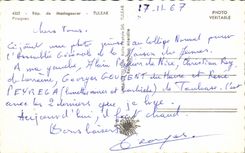 4157 - Rép. de Madagascar - TULEAR
Pirogues
17.11.67
PHOTO
VERITABLE
Chers Tous.
Ci-joint une photo prise au Collège Normal pour
l'Assemblée Générale de la Maison des Jeunes.
A ma gauche, Alain de Nice, Christian Roy
de Lorraine, Georges GOUGENT du Havre et René
PEYREGA de Toulouse. C'est
avec les 2 derniers que je loge.
Aujourd'hui, il fait chaud.
Bons baisers
Georges